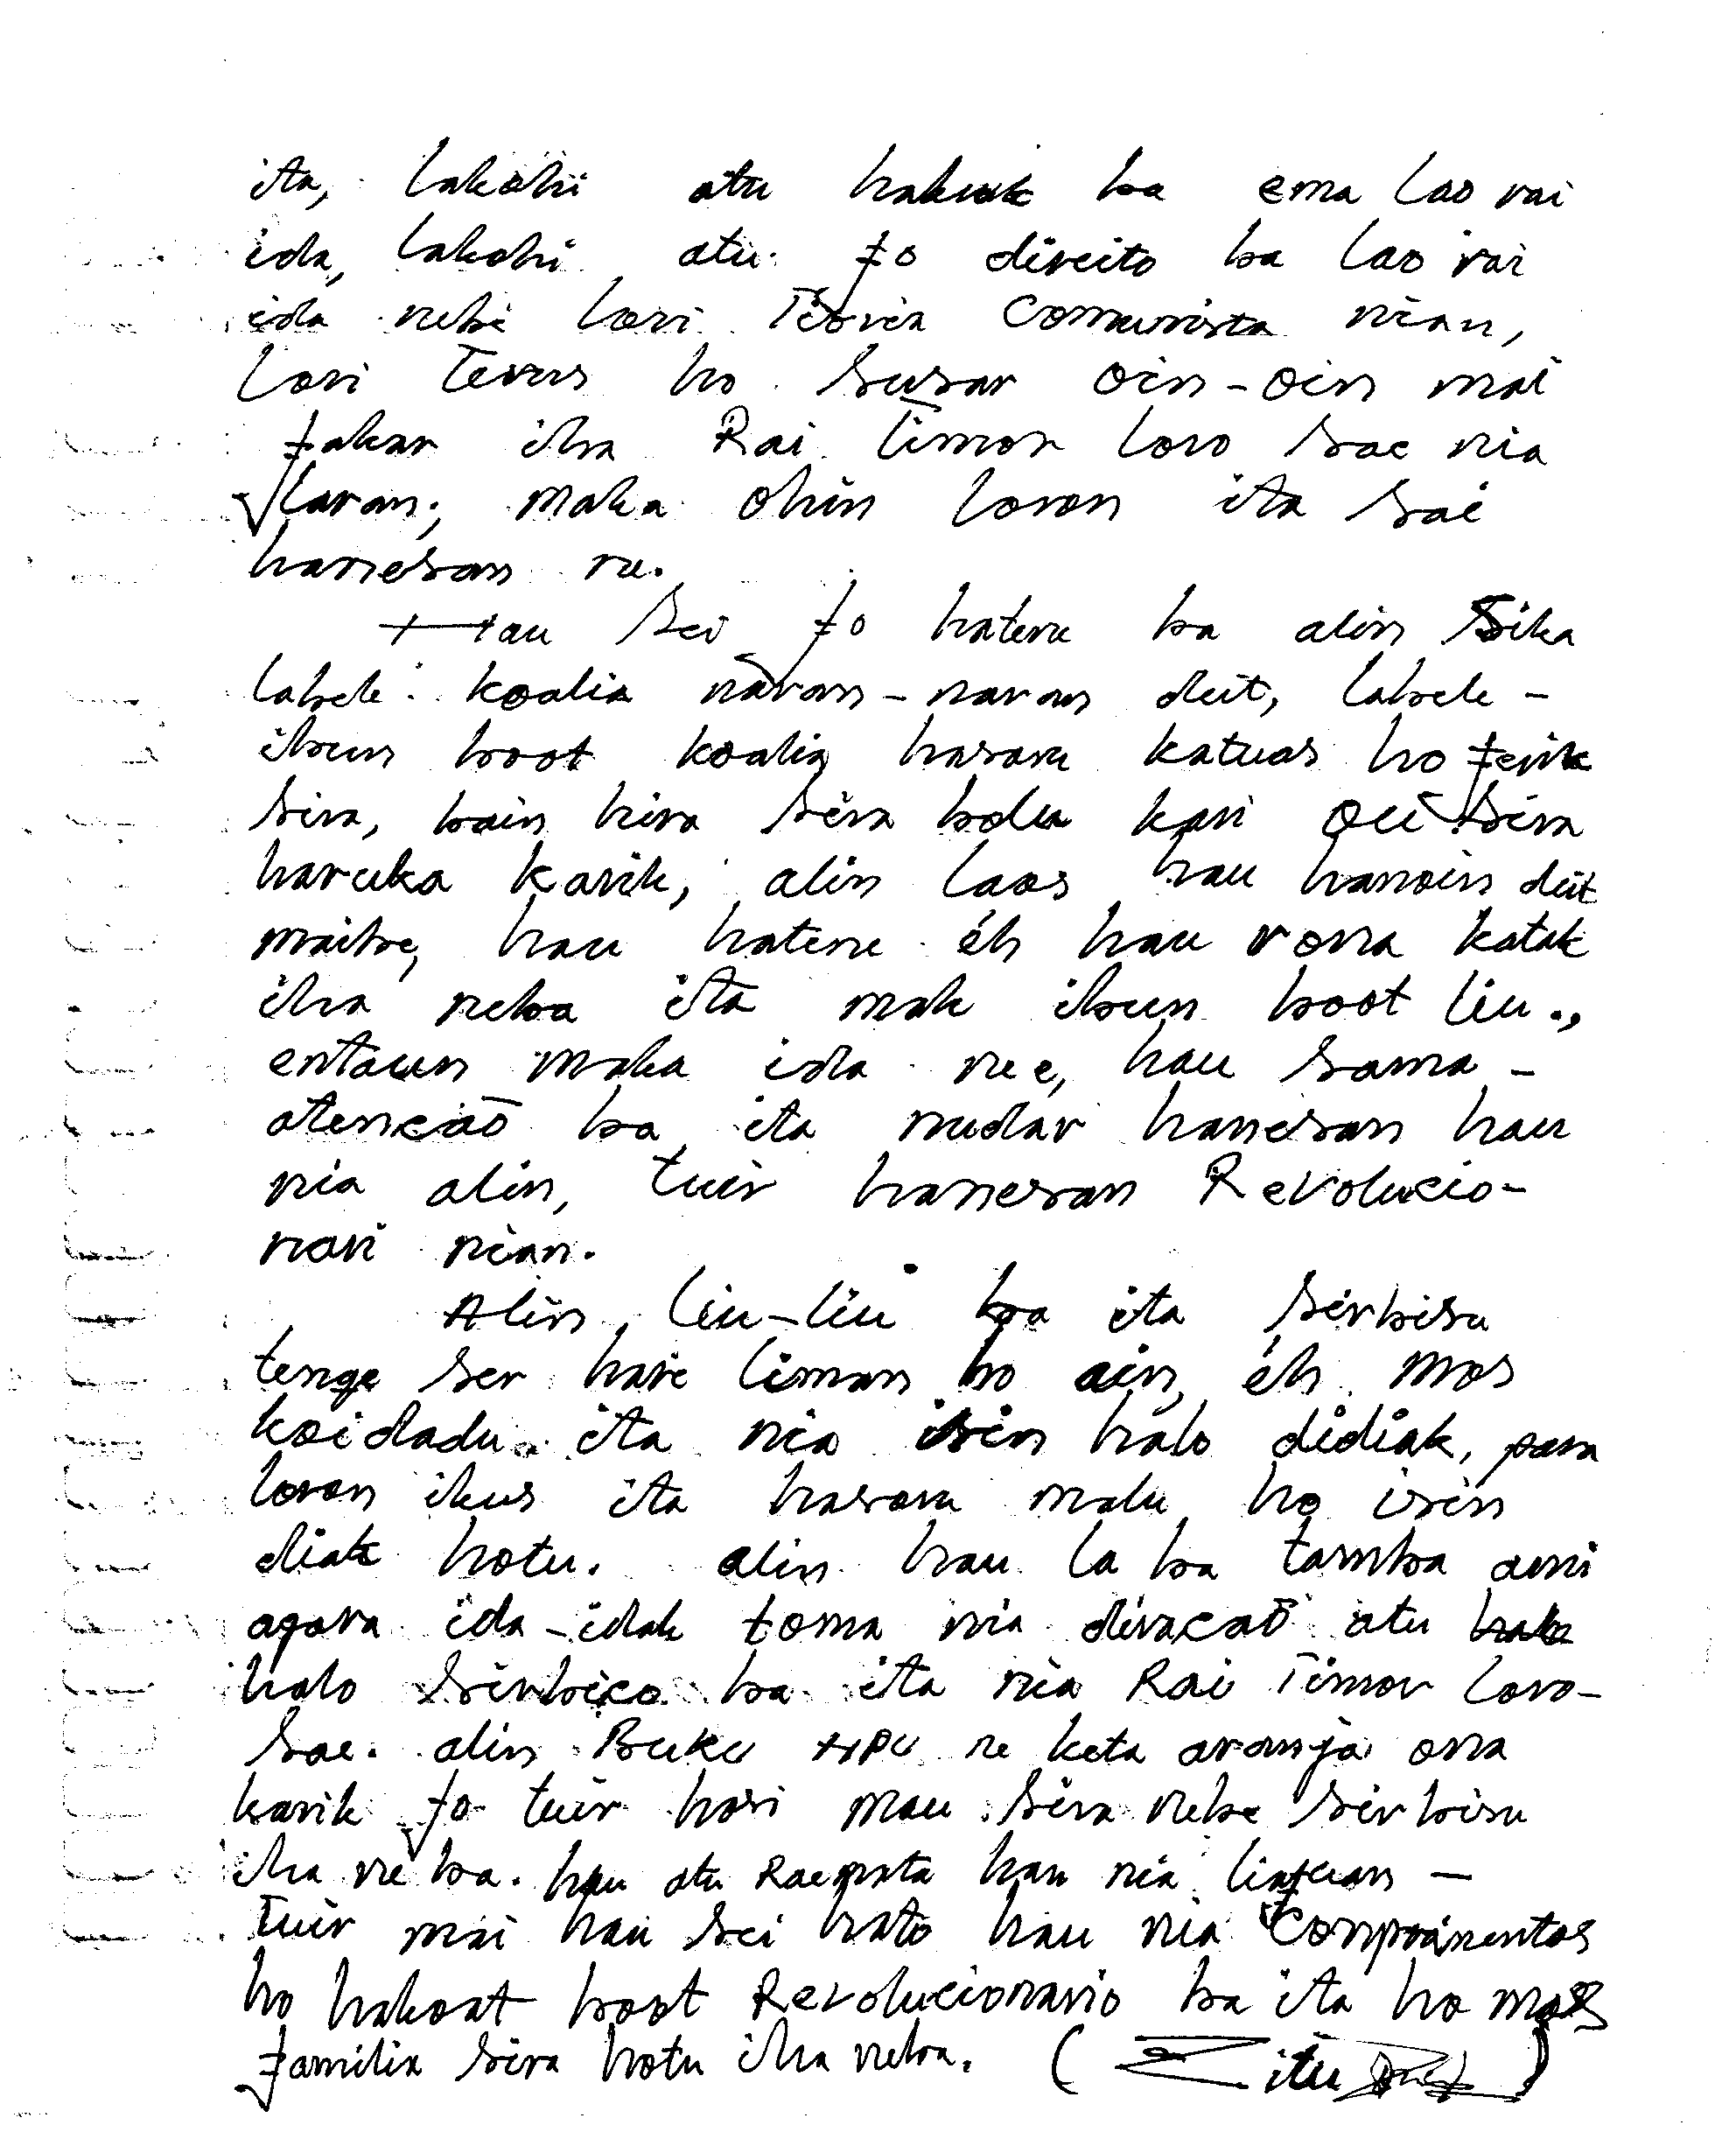 ita, lakohi atu hakruk ba ema lao rai
ida, lakohi atu fo direito ba lao rai
ida nebe lori Teoria Comunista nian,
lori Terus ho susar oin-oin mai
fakar iha Rai Timor loro sae nia
laran; maka ohin loron ita sai
hanesan ne.
Hau sei fo hatene ba alin Sika
labele koalia naran-naran deit, labele-
ibun boot koalia hasoru katuas ho ferik
sira, bain hira sira bolu kari oei sira
haruka karik, alin laos hau hanoin deit
maibe, hau hatene éh hau rona katak
iha neba ita mak ibun boot liu.,
entaun maka ida nee, hau sama-
atencaõ ba ita nudar hanesan hau
nia alin, tuir hanesan Revolucio-
nari nian.
Alin liu-liu ba ita sirbisu
tenge ser hare liman ho ain, éh mos
koidadu ita nia isin halo didiak, para
loron ikus ita hasoru malu ho isin
diak hotu. alin hau la ba tamba ami
agora ida-idak toma nia diracaõ atu
halo sirbico ba ita nia Rai Timor Loro-
Sae. alin Buku ne keta aranja ona
karik fo tuir hosi mau sira nebe sirbisu
iha neba. hau atu nia liafuan -
Tuir mai hau sei hato hau nia Conproimentos
ho hakoat boot Revolucionario ba ita ho mos
familia sira hotu iha neba. ( Zitu )